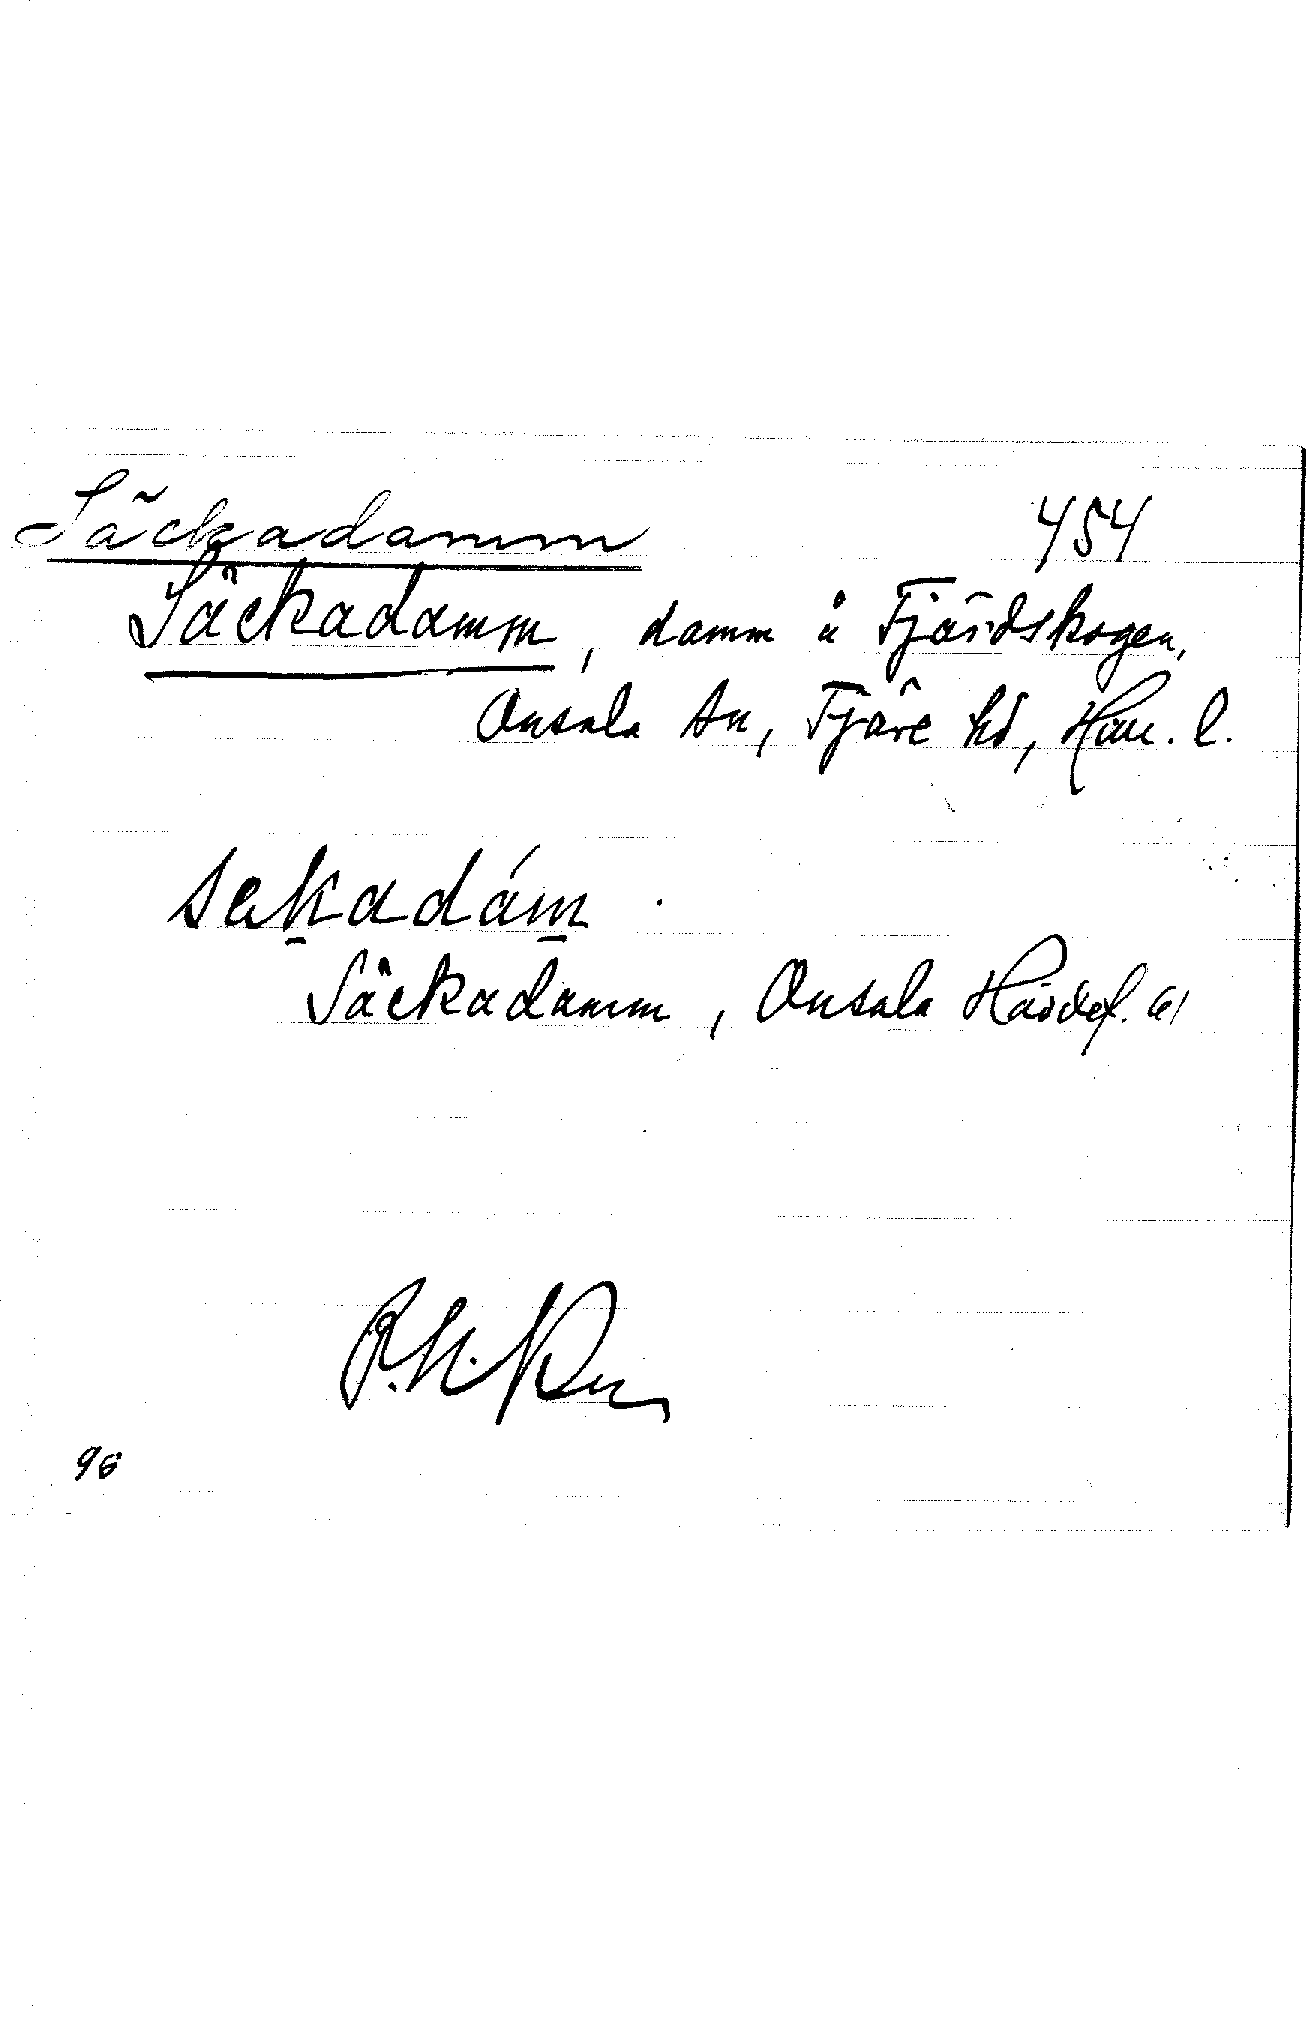 Säckadamm 454
Säckadamm, damm å Fjärdskogen,
Onsala sn, Fjäre hd, Hall. l.
sækadám
Säckadamm, Onsala Häodef. 61
96